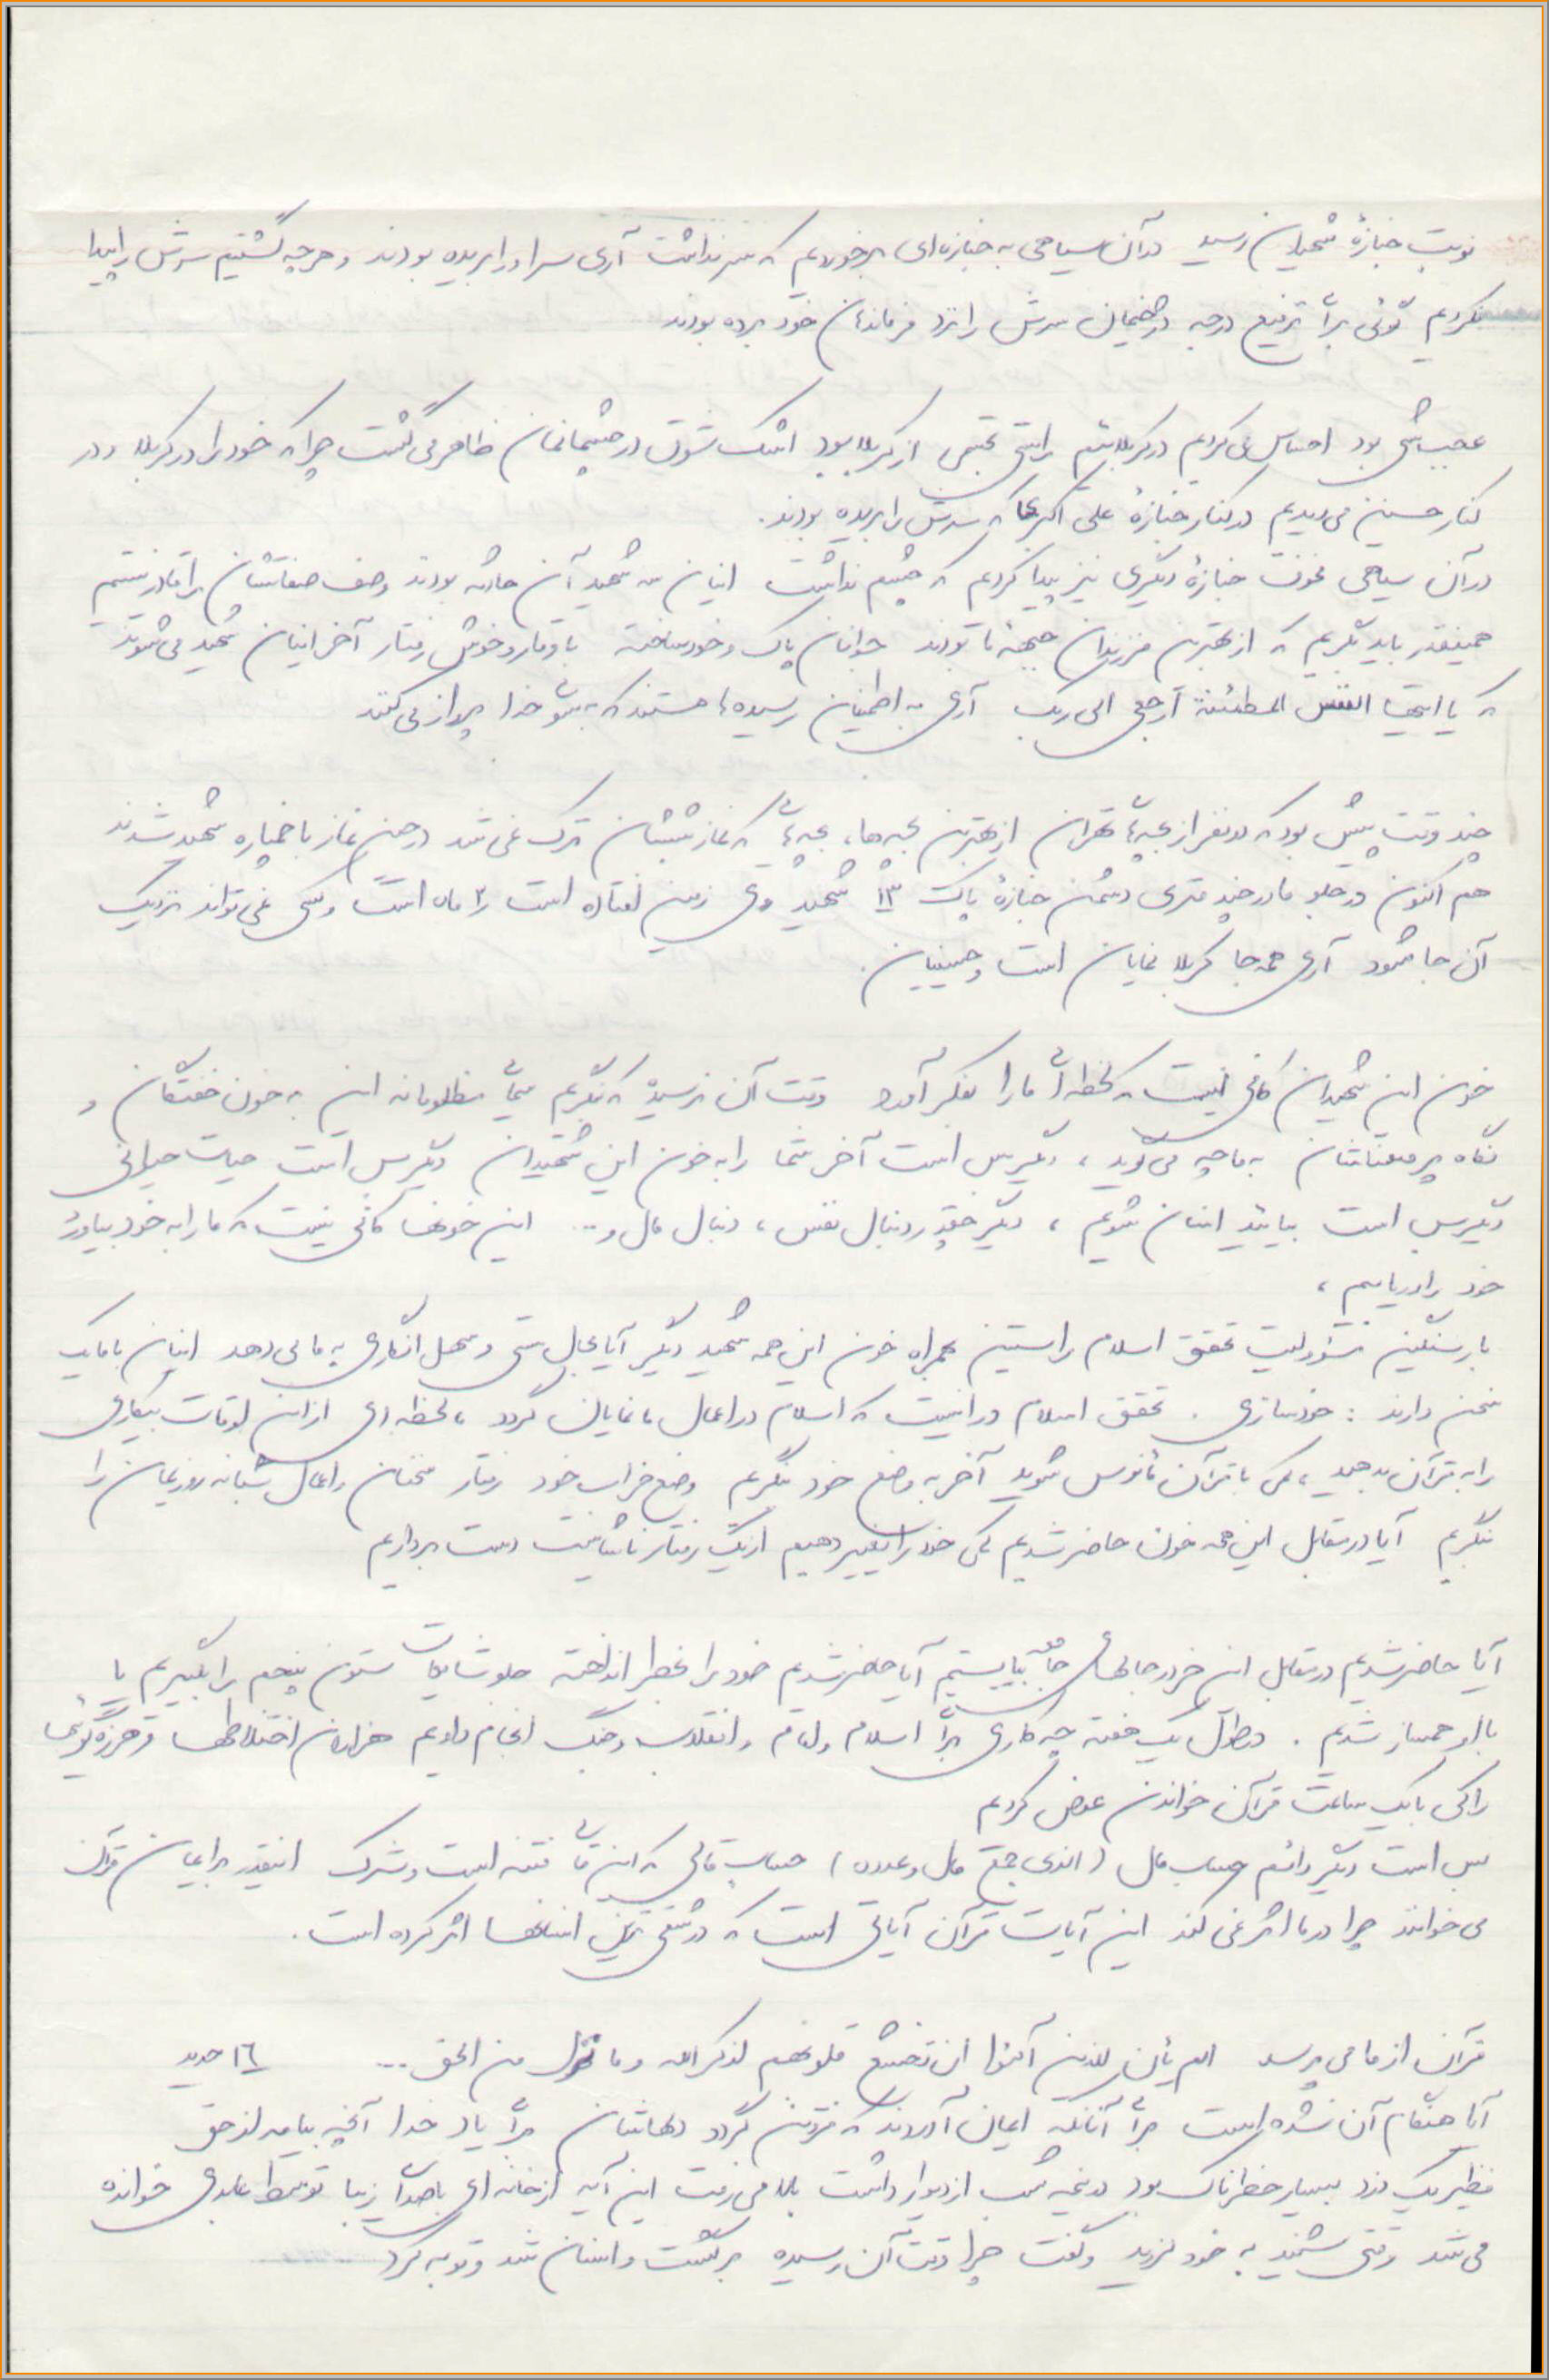 نوبت جنازهٔ شهیدان رسید در آن سیاهی به جنازه‌ای برخوردیم که سر نداشت آری سر او را بریده بودند و هر چه گشتیم سرش را پیدا
نکردیم گوئی برای ترفیع درجه دژخیمان سرش را نزد فرماندهان خود برده بودند
عجیب شبی بود احساس می‌کردیم در کربلائیم راستی تجسمی از کربلا بود اشک شوق در چشمانمان ظاهر می‌گشت چرا که خود را در کربلا و در
کنار حسین می‌دیدیم در کنار جنازهٔ علی اکبرها که سرش را بریده بودند.
در آن سیاهی مخوف جنازهٔ دیگری نیز پیدا کردیم که چشم نداشت اینان سه شهید آن حادثه بودند وصف صفاتشان را قادر نیستم
همینقدر باید بگویم که از بهترین فرزندان جبههٔ ما بودند جوانان پاک و خودساخته با وقار و خوش رفتار آخر اینان شهید می‌شوند
که یا ایتها النفس المطمئنة ارجعی الی ربک آری به اطمینان رسیده‌ها هستند که بسوی خدا پرواز می‌کنند
چند وقت پیش بود که دو نفر از بچه‌های تهران از بهترین بچه‌ها، بچه‌هائی که نماز شبشان ترک نمی‌شد در حین نماز با خمپاره شهید شدند
هم اکنون در جلو ما در چند متری دشمن جنازهٔ پاک ۱۳ شهید روی زمین افتاده است ۲ ماه است و کسی نمی‌تواند نزدیک
آن جا شود آری همه جا کربلا نمایان است و حسینیان.
خون این شهیدان کافی نیست که لحظه‌ای ما را بفکر آورد وقت آن نرسیده که بنگریم سیمای مظلومانه این به خون خفتگان و
نگاه پر معنایشان به ما چه می‌گوید، دیگر بس است آخر شما را به خون این شهیدان دیگر بس است حیات حیوانی
دیگر بس است بیائید انسان شویم، دیگر چقدر دنبال نفس، دنبال مال و... این خونها کافی نیست که ما را به خود بیاورد
خود را دریابیم،
بار سنگین مسئولیت تحقق اسلام راستین بهمراه خون این همه شهید دیگر آیا مجال سستی و سهل انگاری به ما می‌دهد اینان با ما یک
سخن دارند: خودسازی. تحقق اسلام در اینست که اسلام در اعمال ما نمایان گردد، لحظه‌ای از این اوقات بیکاری
را به قرآن بدهید، کمی با قرآن مأنوس شوید آخر به وضع خود بنگریم وضع خراب خود رفتار سخنان و اعمال شبانه روزیمان را
بنگریم آیا در مقابل این همه خون حاضر شدیم کمی خود را تغییر دهیم از یک رفتار ناشایست دست برداریم
آیا حاضر شدیم در مقابل این خر در جالهای بیایستیم آیا حاضر شدیم خود را بخطر انداخته جلو شایعات ستون پنجم را بگیریم یا
با او همساز شدیم. در طول یک هفته چه کاری برای اسلام و امام و انقلاب و جنگ انجام دادیم هزاران اختلاطها و هرزه گوئیها
را کی با یک ساعت قرآن خواندن عوض کردیم
بس است دیگر دائم حساب مال (الذی جمع مال و عدده) حساب مالی که این مال فتنه است و شرک اینقدر برایمان قرآن
می‌خوانند چرا در ما اثر نمی‌کند این آیات قرآن آیاتی است که در شقی ترین انسانها اثر کرده است.
قرآن از ما می‌پرسد الم یأن للذین آمنوا ان تخشع قلوبهم لذکر الله و ما نزل من الحق ... ۱۶ حدید
آیا هنگام آن نشده است برای آنانکه ایمان آوردند که فروتن گردد دلهاشان برای یاد خدا آنچه بیامد از حق
فضیل یک دزد بسیار خطرناک بود در نیمه شب از دیوار داشت بالا می‌رفت این آیه از خانه‌ای با صدای زیبا توسط عابدی خوانده
می‌شد وقتی شنید به خود لرزید و گفت چرا وقت آن رسیده برگشت و انسان شد و توبه کرد